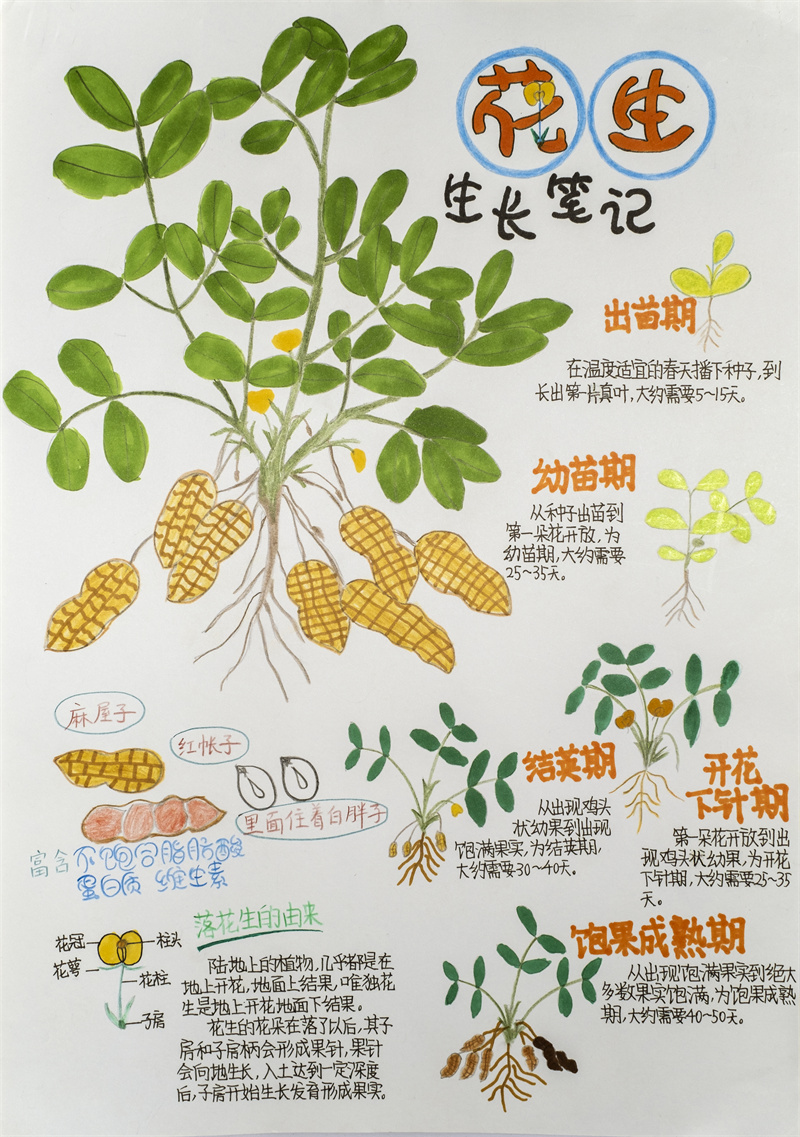 花生
生长笔记
出苗期
在温度适宜的春天播下种子,到
长出第一片真叶,大约需要5~15天。
幼苗期
从种子出苗到
第一朵花开放,为
幼苗期,大约需要
25~35天。
开花
下针期
第一朵花开放到出
现鸡头状幼果,为开花
下针期,大约需要25~35
天。
结荚期
从出现鸡头
状幼果到出现
饱满果实,为结荚期,
大约需要30~40天。
饱果成熟期
从出现饱满果实到绝大
多数果实饱满,为饱果成熟
期,大约需要40~50天。
麻屋子
红帐子
里面住着白胖子
富含不饱合脂肪酸
蛋白质 维生素
花冠
柱头
花萼
花柱
子房
落花生的由来
陆地上的植物,几乎都是在
地上开花,地面上结果,唯独花
生是地上开花地面下结果。
花生的花朵在落了以后,其子
房和子房柄会形成果针,果针
会向地生长,入土达到一定深度
后,子房开始生长发育形成果实。